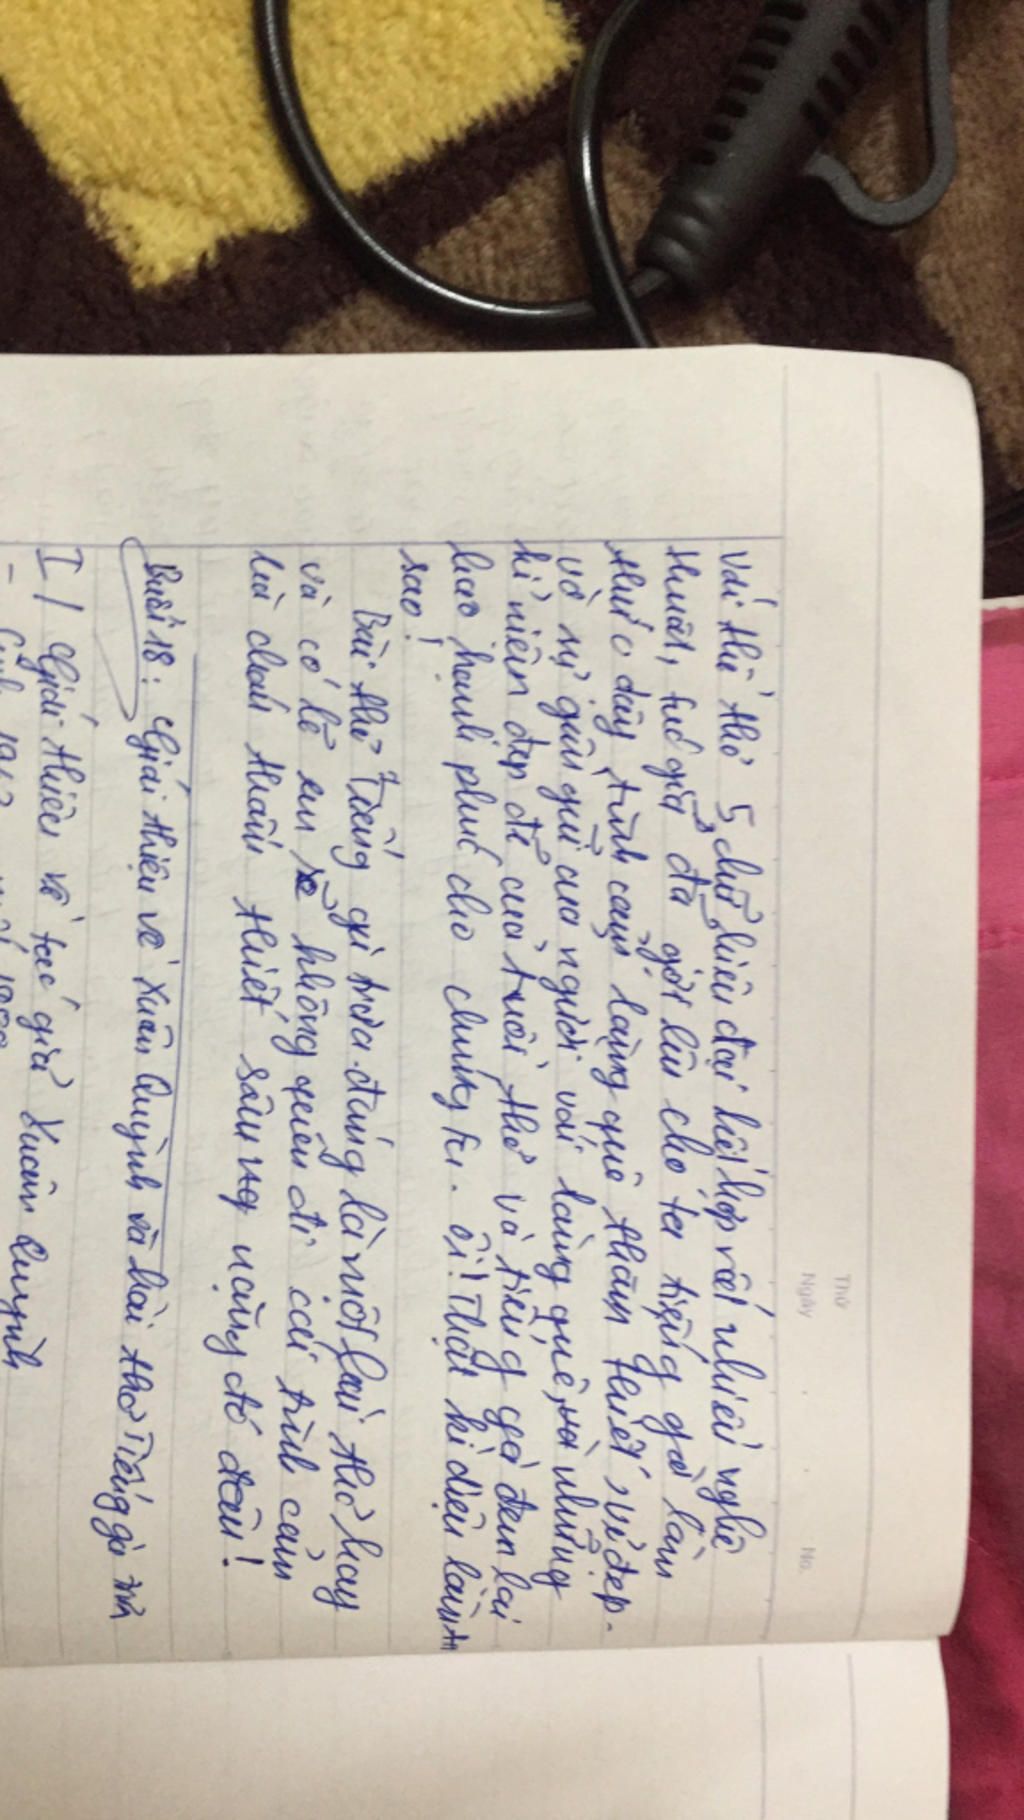 Thứ
Ngày
No.
Với thể thơ 5 chữ hiện đại kết hợp rất nhiều nghệ
thuật, tác giả đã gợi lên cho ta tiếng gà làm
thức dậy tình cảm làng quê thắm thiết, vẻ đẹp
về sự gần gũi của người với làng quê, và những
kỉ niệm đẹp đẽ của tuổi thơ và tiếng gà đem lại
bao hạnh phúc cho chúng ta. Ôi! Thật kì diệu làm
sao!
Bài thơ Tiếng gà trưa đúng là một bài thơ hay
và có lẽ em sẽ không quên đi cái tình cảm
bà cháu thắm thiết sâu nặng đó đâu!
Buổi 18: Giới thiệu về Xuân Quỳnh và bài thơ Tiếng gà trưa
I/ Giới thiệu về tác giả Xuân Quỳnh